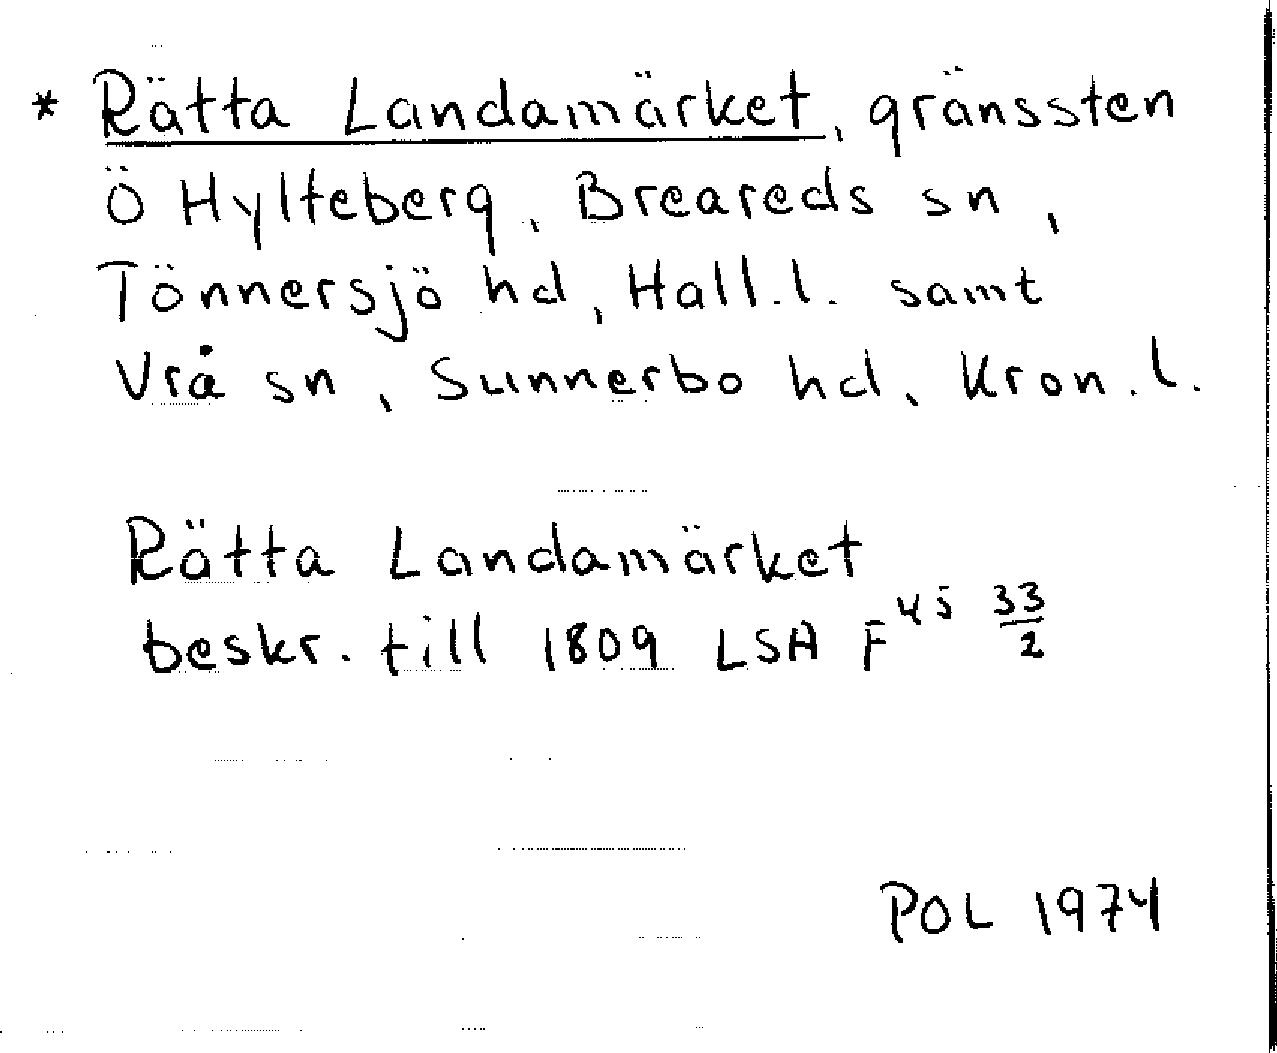 * Rätta Landamärket, gränssten
Ö Hylteberg, Breareds sn,
Tönnersjö hd, Hall.l. samt
Vrå sn, Sunnerbo hd, Kron.l.
Rätta Landamärket
beskr. till 1809 LSA F 45 33/2
POL 1974